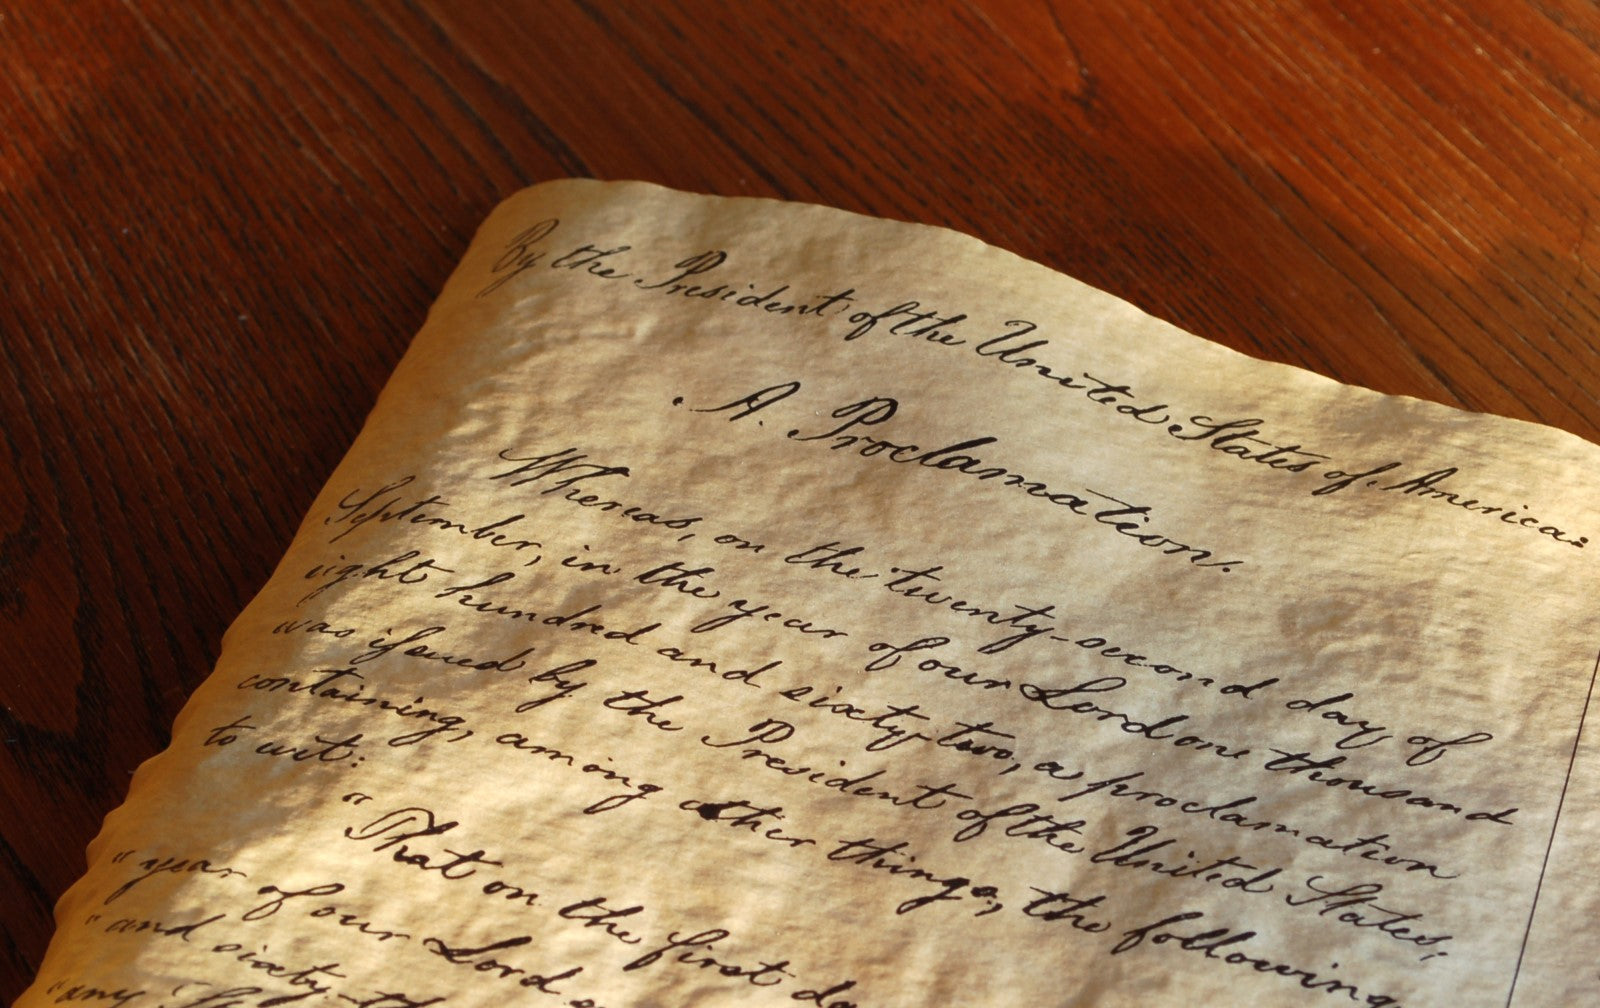 By the President of the United States of America:
A. Proclamation.
Whereas, on the twenty-second day of
September, in the year of our Lord one thousand
eight hundred and sixty-two, a proclamation
was issued by the President of the United States,
containing, among other things, the following
to wit:
"That on the first
"year of our Lord
"and sixty-
"any